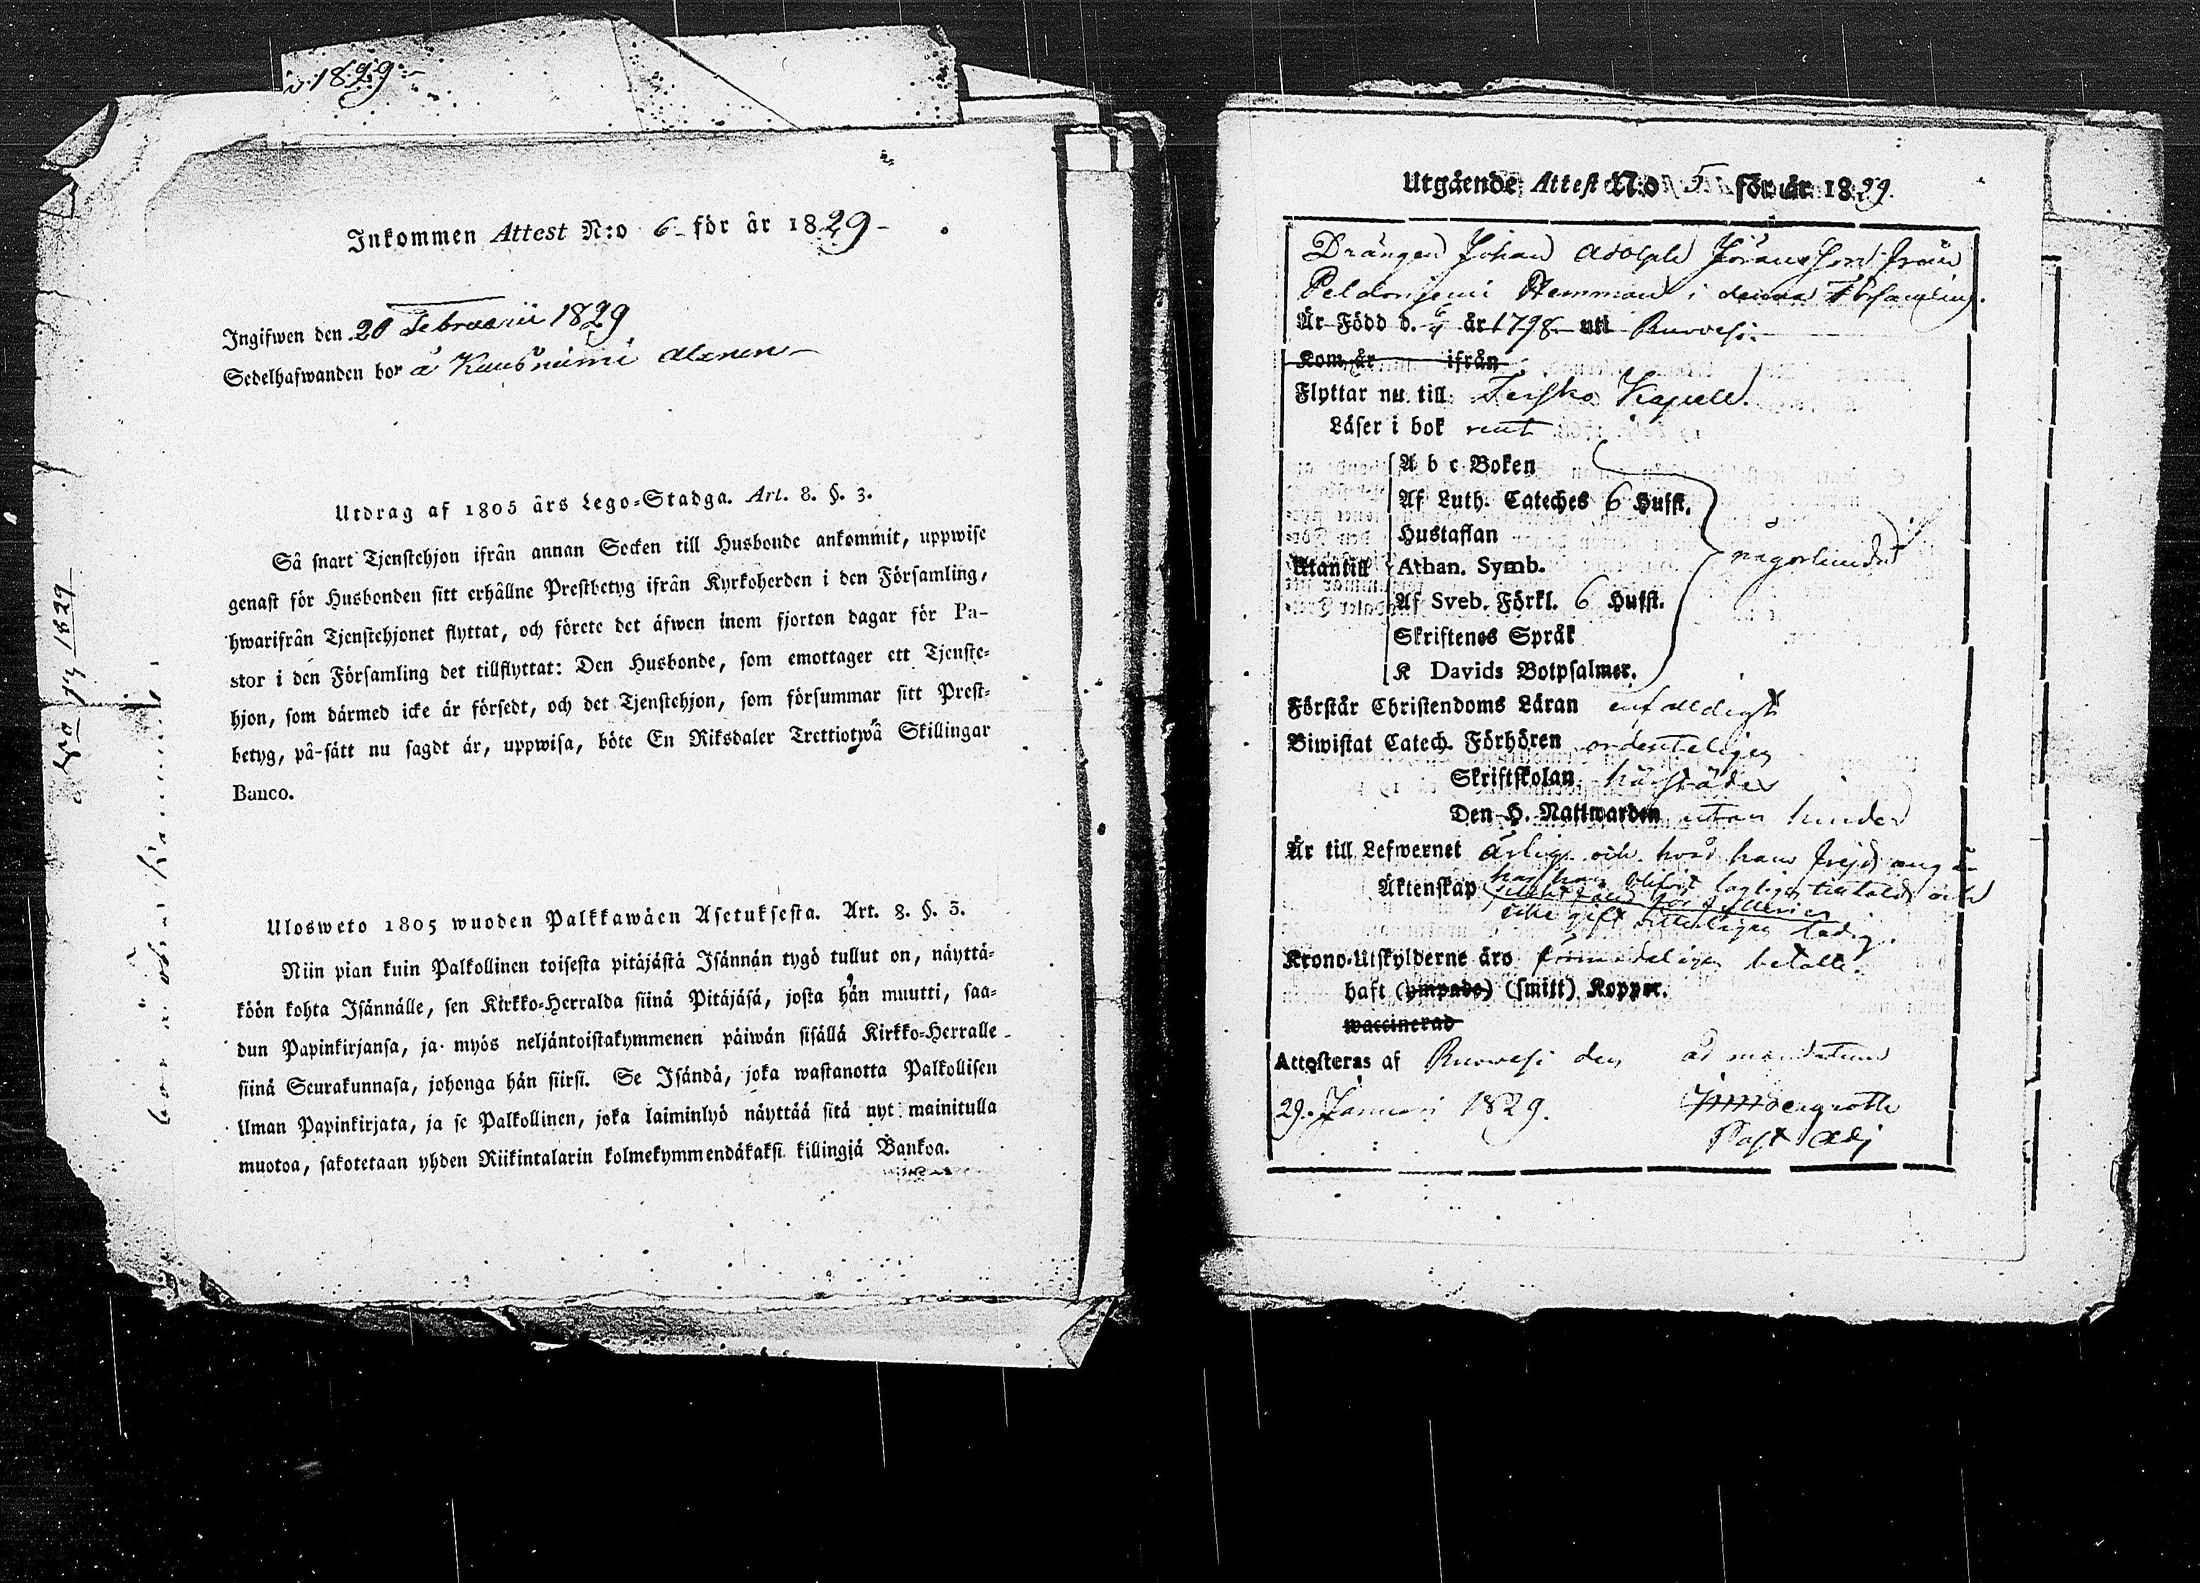 1829
Inkommen Attest N:o 6 för år 1829
Ingifwen den 20 Februarii 1829
Sedelhafwanden bor å
Utdrag af 1805 års Lego-Stadga. Art. 8. §. 3.
Så snart Tjenstehjon ifrån annan Socken till Husbonde ankommit, uppwise
genast för Husbonden sitt erhållne Prestbetyg ifrån Kyrkoherden i den Församling,
hwarifrån Tjenstehjonet flyttat, och förete det äfwen inom fjorton dagar för Pa-
stor i den Församling det tillflyttat: Den Husbonde, som emottager ett Tjenste-
hjon, som därmed icke är försedt, och det Tjenstehjon, som försummar sitt Prest-
betyg, på-sätt nu sagdt är, uppwisa, böte En Riksdaler Trettiotwå Skillingar
Banco.
Ulosweto 1805 wuoden Palkkawäen Asetuksesta. Art. 8. §. 3.
Niin pian kuin Palkollinen toisesta pitäjästä Isännän tygö tullut on, näyttä-
köön kohta Isännälle, sen Kirkko-Herralda siinä Pitäjäsä, josta hän muutti, saa-
dun Papinkirjansa, ja myös neljäntoistakymmenen päiwän sisällä Kirkko-Herralle
siinä Seurakunnasa, johonga hän siirsi. Se Isändä, joka wastanotta Palkollisen
ilman Papinkirjata, ja se Palkollinen, joka laiminlyö näyttää sitä nyt mainitulla
muotoa, sakotetaan yhden Riikintalarin kolmekymmendäkaksi killingiä Bankoa.
1829
Utgående Attest N:o 5 för år 1829.
Drängen Johan Adolph Jöransson från
Hemman i denna Församling.
Är Född d. år 1798 uti Ruovesi
Kom år ifrån
Flyttar nu till Kapell.
Läser i bok rent
Utantill
A b c Boken
Af Luth. Cateches 6 Hufst.
Hustaflan
Athan. Symb.
Af Sveb. Förkl. 6 Hufst.
Skriftenes Språk
K Davids Botpsalmer.
någorlunda
Förstår Christendoms Läran enfaldigt
Biwistat Catech. Förhören ordenteligen
Skriftskolan härstädes
Den H. Nattwarden utan hinder
Är till Lefwernet ärlig och hvad hans frejd ang
Äktenskap har han lagligen och
icke gift ledig.
Krono-Utskylderne äro betalte.
haft (ympade) (smitt) Koppor.
waccinerad
Attesteras af Ruovesi den ad mandatum
29 Januari 1829.
Past Adj